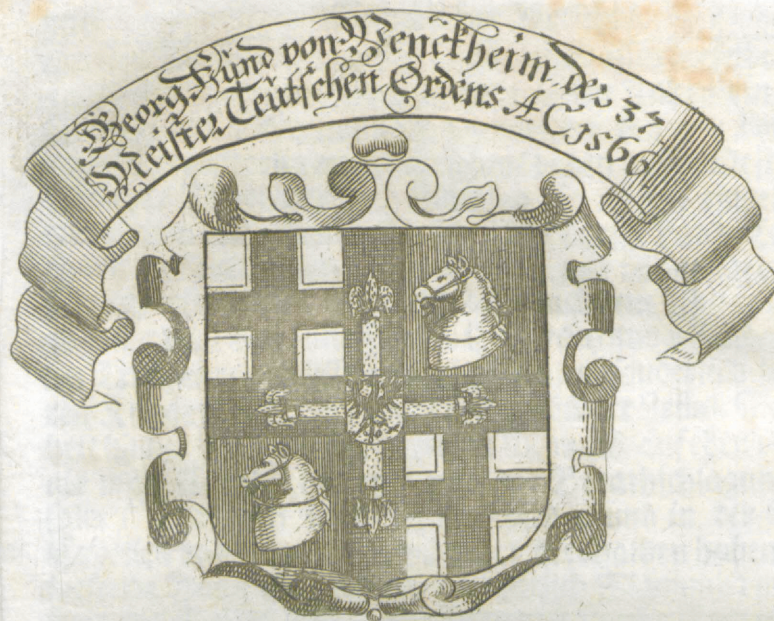 Georg Hund von Wenckheim, der 37
Meister Teutschen Ordens A. C. 1566.